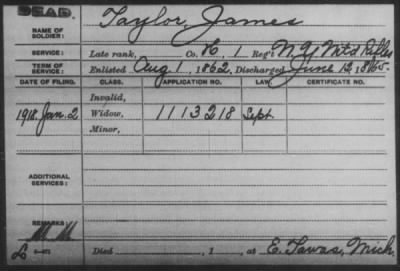 DEAD.
NAME OF SOLDIER: Taylor, James
SERVICE: Late rank, Co. K, 1 Reg't N.Y. Mt'd Rifles
TERM OF SERVICE: Enlisted Aug 1, 1862, Discharged June 12, 1865.
DATE OF FILING. CLASS. APPLICATION NO. LAW. CERTIFICATE NO.
Invalid,
1918. Jan. 2 Widow, 1113218 Sept.
Minor,
ADDITIONAL SERVICES:
REMARKS:
Died , 1 , at E. Tawas, Mich.